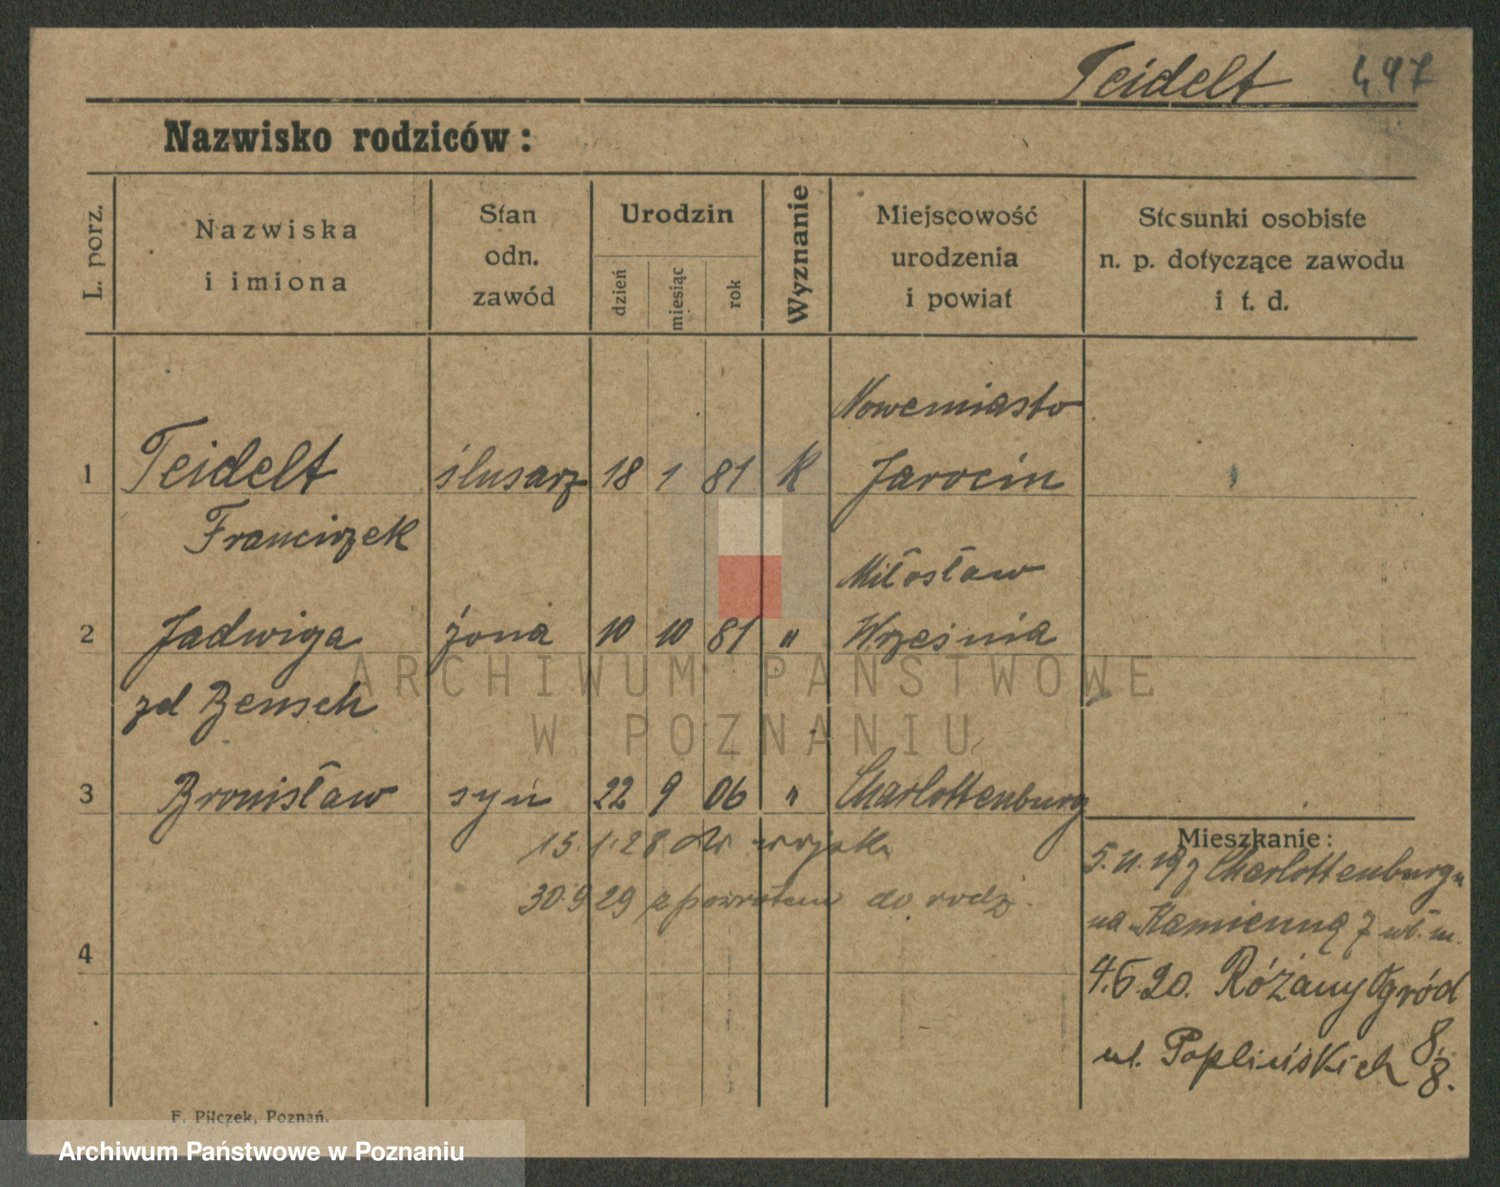 Teidelt 497
Nazwisko rodziców:
L. porz.
Nazwiska
i imiona
Stan
odn.
zawód
Urodzin
dzień
miesiąc
rok
Wyznanie
Miejscowość
urodzenia
i powiat
Stosunki osobiste
n. p. dotyczące zawodu
i t. d.
Nowemiasto
1 Teidelt ślusarz 18 1 81 K Jarocin
Franciszek
Miłosław
2 Jadwiga żona 10 10 81 " Września
zd Bensch
3 Bronisław syn 22 9 06 " Charlottenburg
15.1.28 do wojska
30.9.29 z powrotem do rodz.
4
Mieszkanie:
5.11.19 z Charlottenburga
na Kamienną 7 wł. m.
4.6.20. Różany Ogród
ul. Poplińskich 8/8.
F. Pilczek, Poznań.
ARCHIWUM PAŃSTWOWE
W POZNANIU
Archiwum Państwowe w Poznaniu